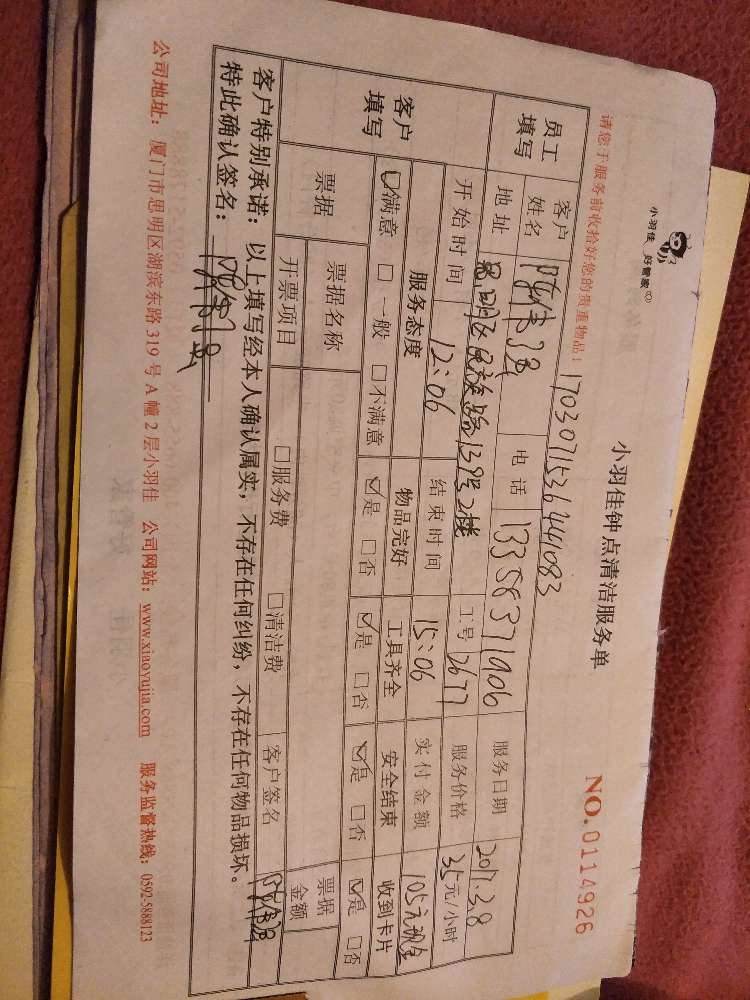 小羽佳 好管家
小羽佳钟点清洁服务单
NO.0114926
请您于服务前收拾好您的贵重物品！
170307153644083
员工填写 客户姓名 电话 13358371906 服务日期 2017.3.8
地址 思明区民族路139号2楼 工号 2677 服务价格 35元/小时
开始时间 12:06 结束时间 15:06 实付金额 105元现金
客户填写 服务态度 物品完好 工具齐全 安全结束 收到卡片
☑满意 □一般 □不满意 ☑是 □否 ☑是 □否 ☑是 □否 ☑是 □否
票据 票据名称 票据金额
开票项目 □服务费 □清洁费 客户签名
客户特别承诺：以上填写经本人确认属实，不存在任何纠纷，不存在任何物品损坏。
特此确认签名：
公司地址：厦门市思明区湖滨东路319号A幢2层小羽佳 公司网站：www.xiaoyujia.com 服务监督热线：0592-5888123